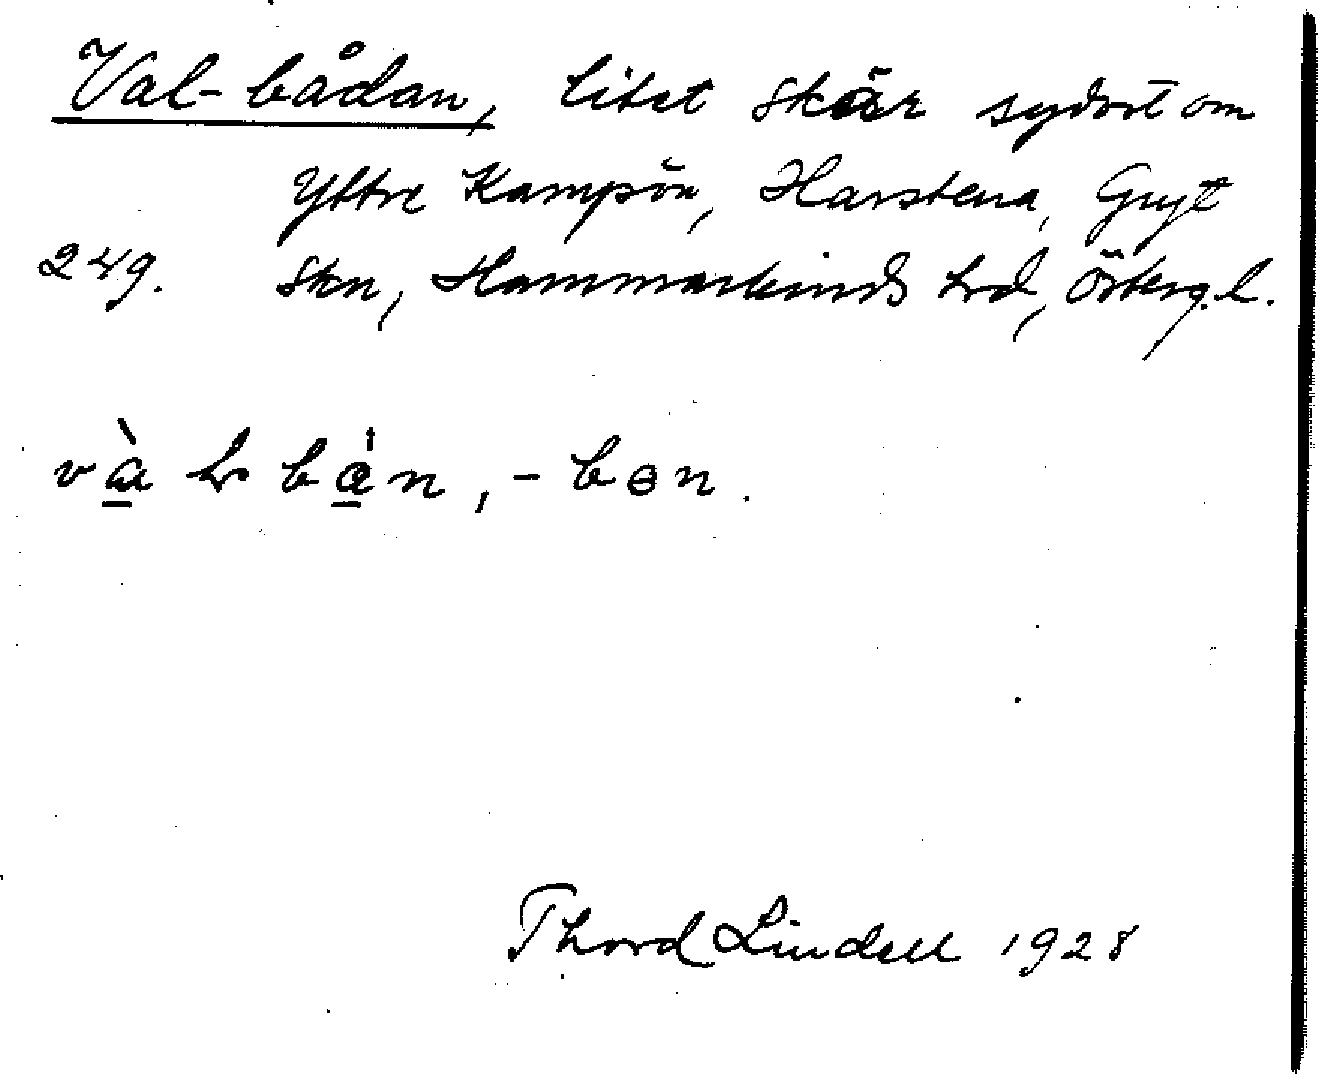 Val-bådan, litet skär sydost om
Yttre Kampön, Harstena, Gryt
249. skn, Hammarkinds hrd, Östergl.
-bɵn.
Thord Lindell 1928